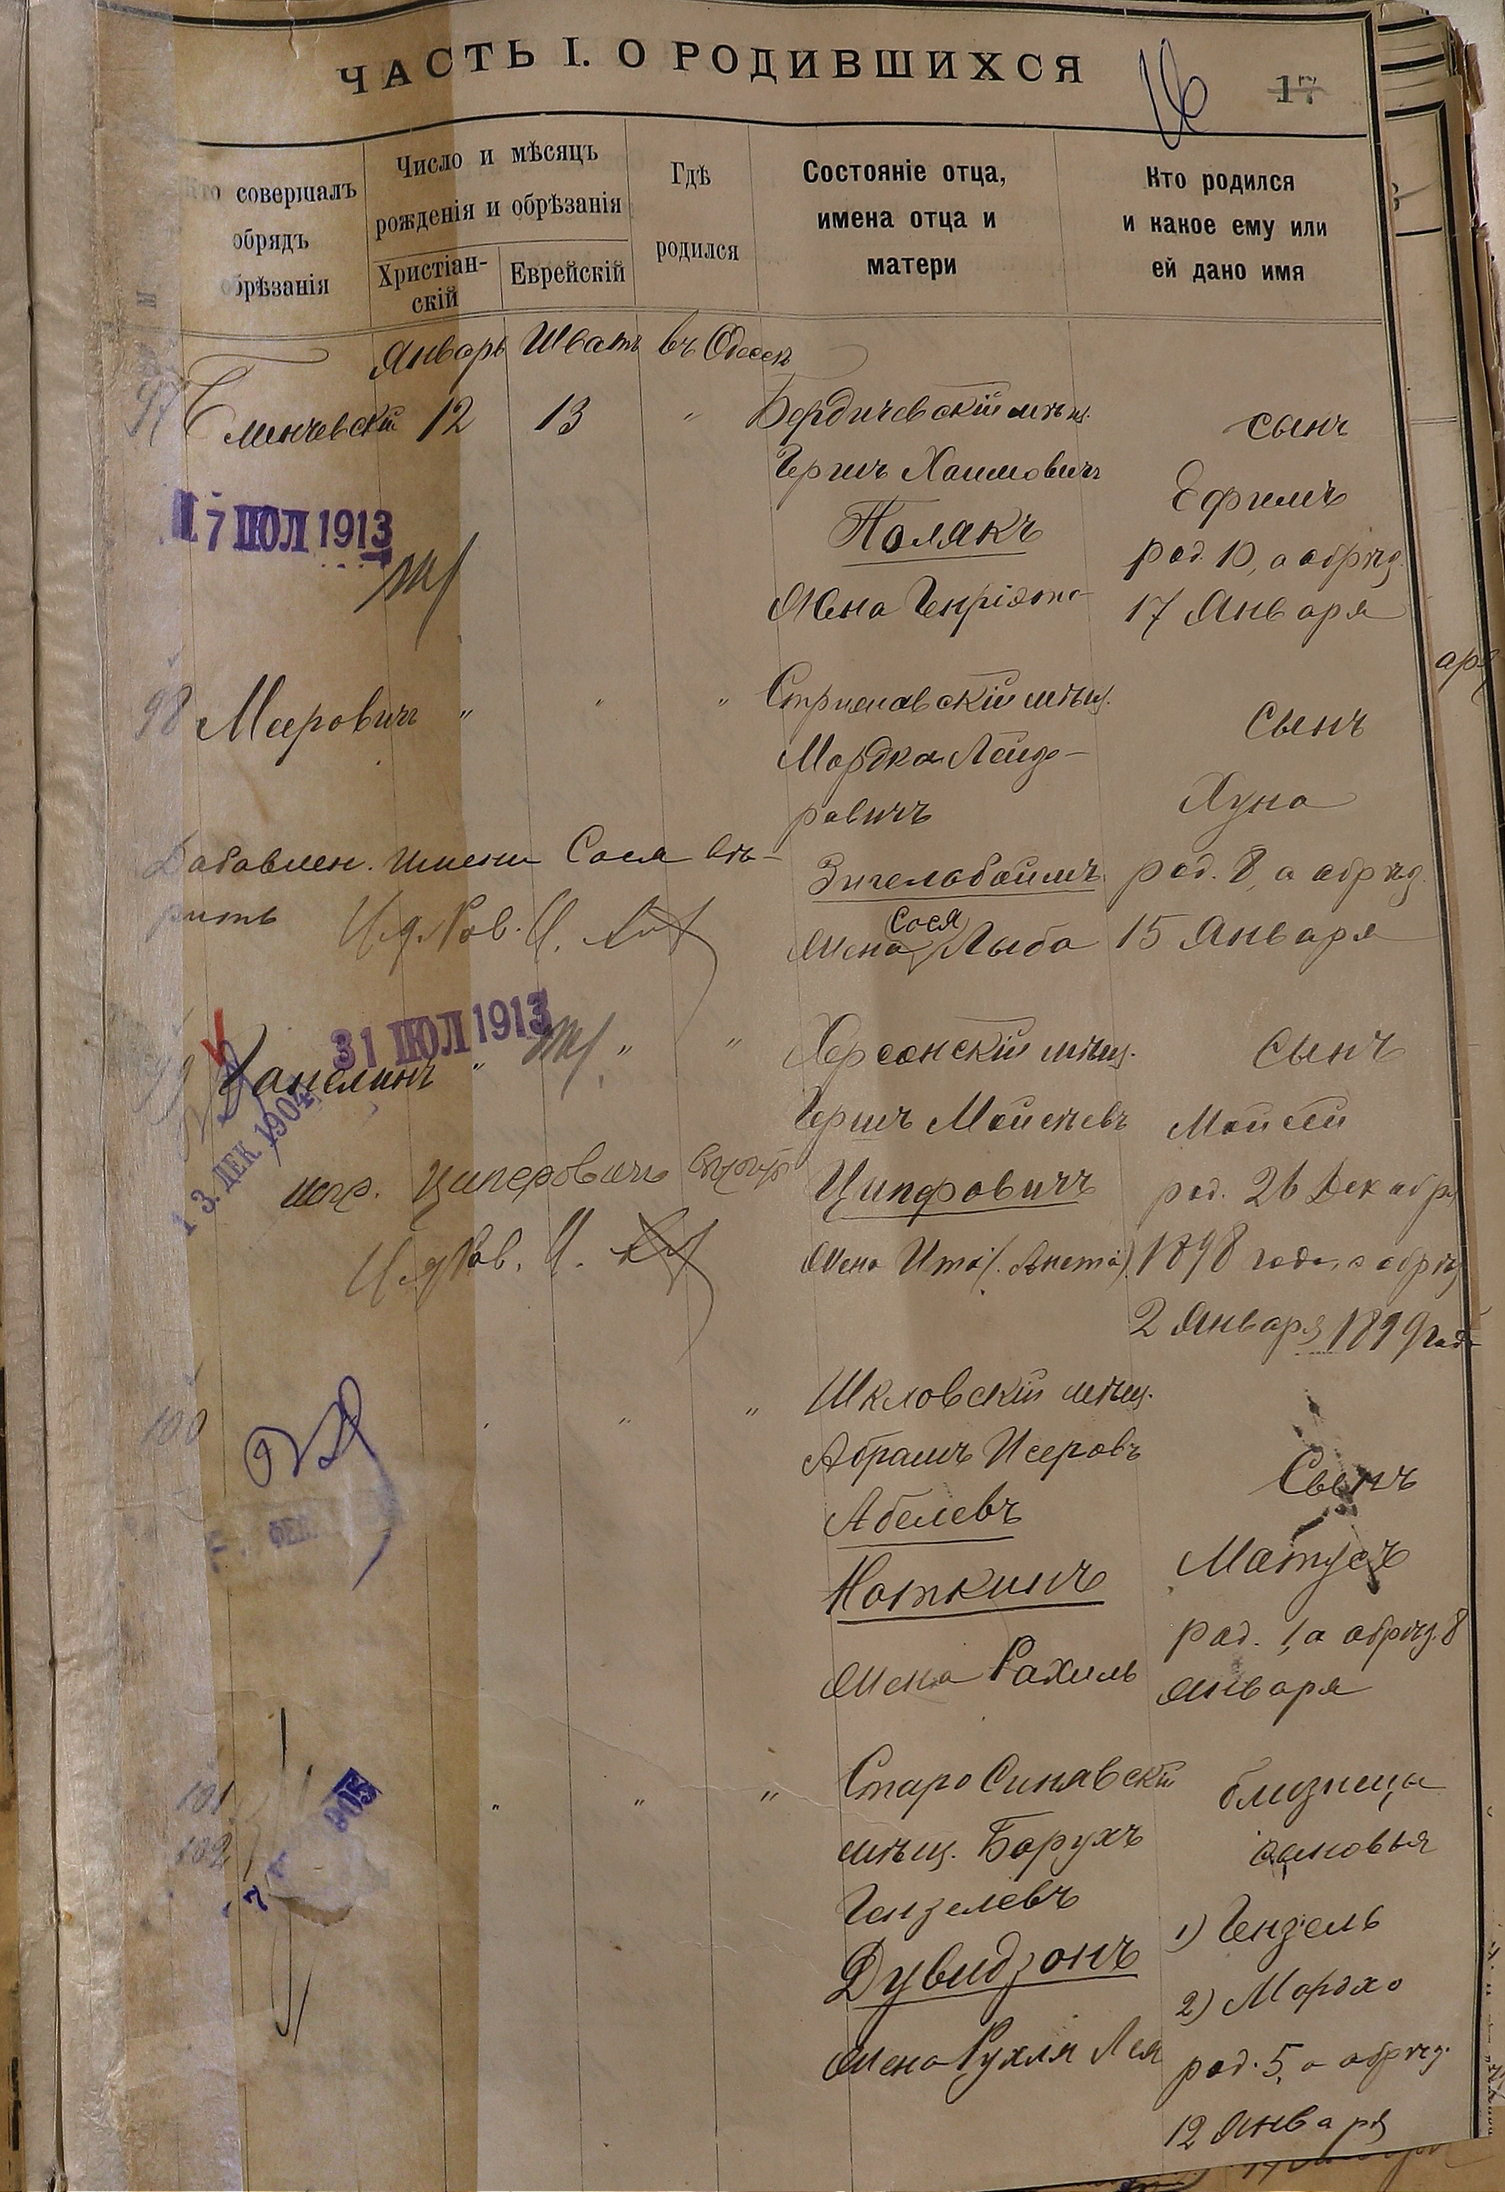 ЧАСТЬ I. О РОДИВШИХСЯ
16 17
Кто совершалъ
обрядъ
обрѣзанія
Число и мѣсяцъ
рожденія и обрѣзанія
Христіан-
скій
Еврейскій
Гдѣ
родился
Состояніе отца,
имена отца и
матери
Кто родился
и какое ему или
ей дано имя
Январь Шватъ въ Одессѣ
97 12 13 " Бердичевскій мѣщ. сынъ
Гершъ Хаимовичъ Ефимъ
17 ІЮЛ 1913
Полякъ род. 10, а обрѣз.
Жена Генріэта 17 Января
98 Мееровичъ " " " мѣщ. сынъ
Мордка Лейзе-
ровичъ Хуна
Добавлен. имени Сося вѣ-
рить
Зигельбоймъ род. 8, а обрѣз.
Сося
Жена Лыба 15 Января
31 ІЮЛ 1913
99 " " " Херсонскій мѣщ. сынъ
Гершъ Мойсеевъ Мойсей
13. ДЕК 1904
испр. Ципоровичъ
Ципоровичъ род. 26 Декабря
Жена Ита (Анета) 1898 года, а обрѣз.
2 Января 1899 года
100 " " Шкловскій мѣщ.
Абрамъ Исеровъ Сынъ
Абелевъ
ФЕВ
Ноткинъ Матусъ
род. 1, а обрѣз. 8
Жена Рахиль Января
101 " " " Старо Синявскій близнецы
102 мѣщ. Борухъ сыновья
905
Гензелевъ 1) Гензель
Дувидзонъ 2) Мордхо
Жена Рухля Лея род. 5, а обрѣз.
12 Января